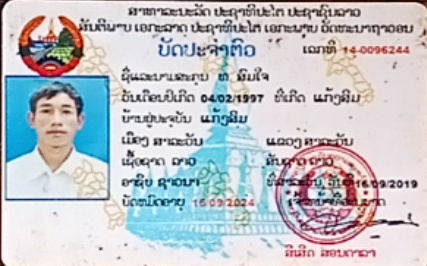 ສາທາລະນະລັດ ປະຊາທິປະໄຕ ປະຊາຊົນລາວ
ສັນຕິພາບ ເອກະລາດ ປະຊາທິປະໄຕ ເອກະພາບ ວັດທະນາຖາວອນ
ບັດປະຈຳຕົວ ເລກທີ 14-0096244
ຊື່ແລະນາມສະກຸນ ທ ສົມໃຈ
ວັນເດືອນປີເກີດ 04/02/1997 ທີ່ເກີດ ແກ້ງສິມ
ບ້ານຢູ່ປະຈຸບັນ ແກ້ງສິມ
ເມືອງ ສາລະວັນ ແຂວງ ສາລະວັນ
ເຊື້ອຊາດ ລາວ ສັນຊາດ ລາວ
ອາຊີບ ຊາວນາ ທີ່ສາລະວັນ, ວັນທີ 16/09/2019
ບັດໝົດອາຍຸ 16/09/2024
ສີສິດ ສອນດາລາ